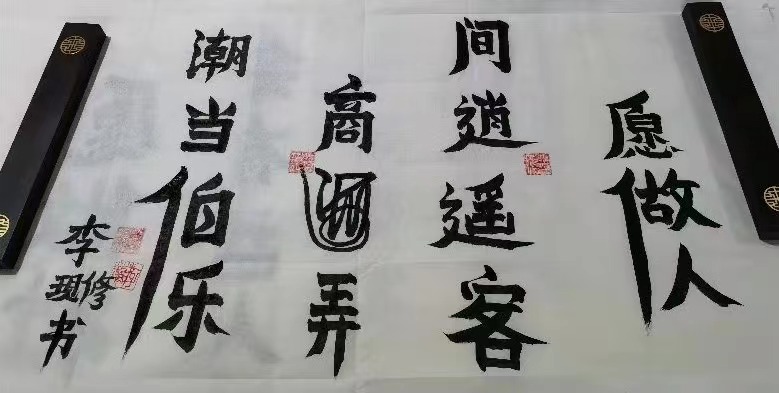 愿做人
间逍遥客
商弄
潮当伯乐
李修现书